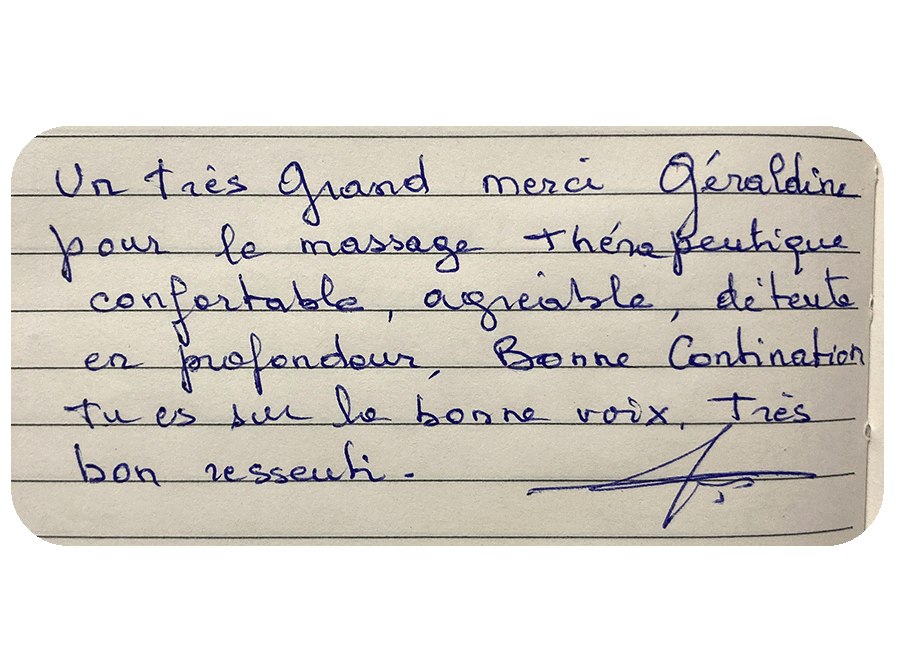 Un très grand merci Géraldine
pour le massage thérapeutique
confortable, agréable, détente
en profondeur, Bonne Contination
tu es sur la bonne voix. Très
bon ressenti.